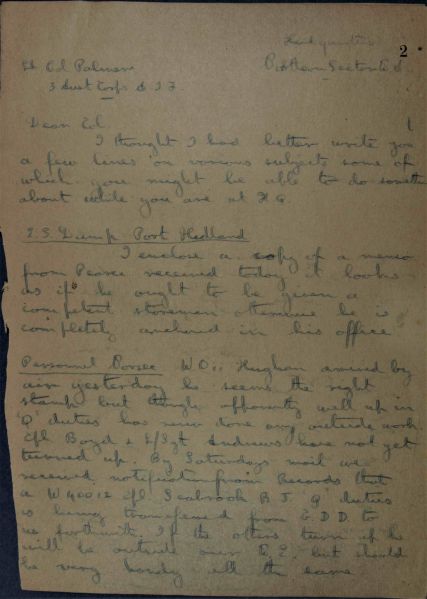 Headquarters
2
Lt Col Palmer
3 Aust Corps A I F
Dear Col.
I thought I had better write you
a few lines on various subjects some of
which you might be able to do something
about while you are at H Q.
Dump Port Hedland
I enclose a copy of a memo
from Pearce received today it looks
as if he ought to be given a
competent storeman otherwise he is
completely anchored in his office
Personnel W O ii Hughan arrived by
air yesterday he seems the right
stamp but though apparently well up in
'Q' duties has never done any outside work
Cpl Boyd & S/Sgt Andrews have not yet
turned up. By Saturdays mail we
received notification from Records that
a Cpl Seabrook B J 'Q' duties
is being transferred from to
us forthwith. If the others turn up he
will be outside our but should
be very handy all the same